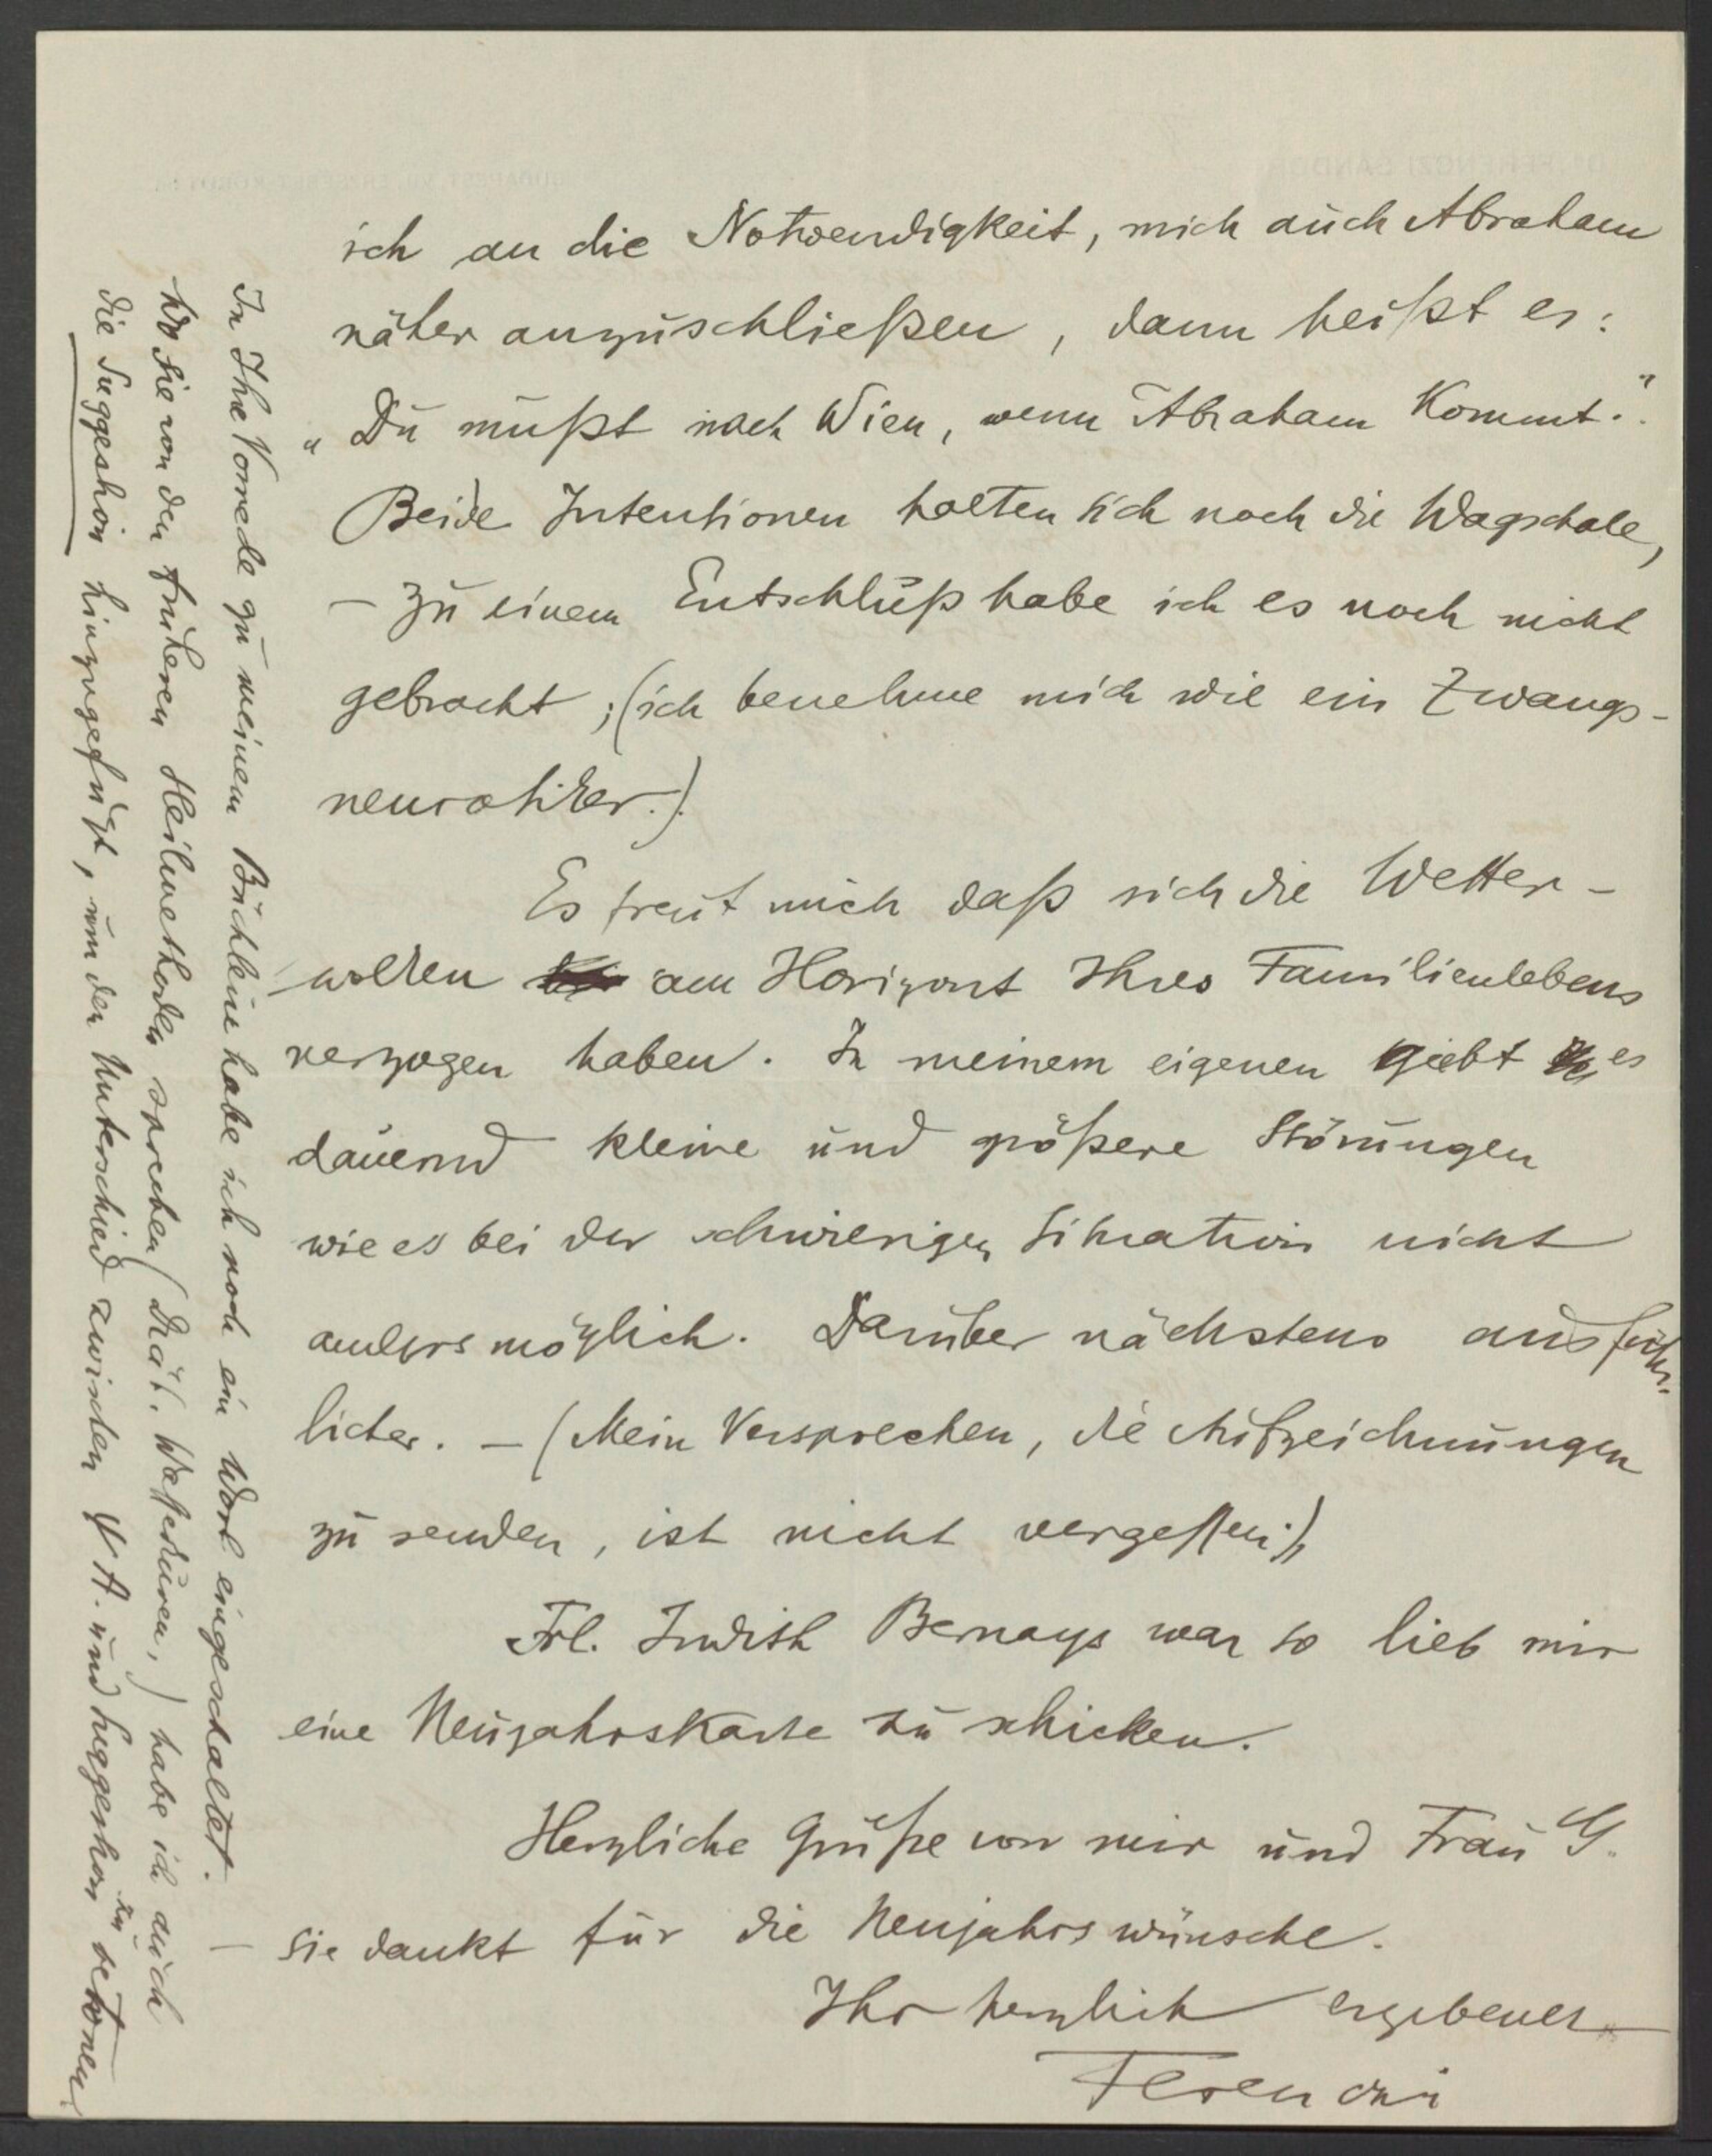 ich an die Notwendigkeit, mich auch Abraham
näher anzuschließen, dann heißt es:
„Du mußt nach Wien, wenn Abraham kommt."
Beide Intentionen halten sich noch die Wagschale,
– zu einem Entschluß habe ich es noch nicht
gebracht; (ich benehme mich wie ein Zwangs-
neurotiker.)
Es freut mich daß sich die Wetter-
wolken am Horizont Ihres Familienlebens
verzogen haben. In meinem eigenen giebt es
dauernd kleine und größere Störungen
wie es bei der schwierigen Situation nicht
anders möglich. Darüber nächstens ausführ-
licher. – (Mein Versprechen, die Aufzeichnungen
zu senden, ist nicht vergessen.)
Frl. Judith Bernays war so lieb mir
eine Neujahrskarte zu schicken.
Herzliche Grüße von mir und Frau G.
– sie dankt für die Neujahrswünsche.
Ihr herzlich ergebener
Ferenczi
In Ihre Vorrede zu meinem Büchlein habe ich noch ein Wort eingeschaltet.
Wo Sie von den früheren Heilmethoden sprechen (Diät. Wasserkuren,) habe ich auch
die Suggestion hinzugefügt, um den Unterschied zwischen ΨA. und Suggestion zu betonen.